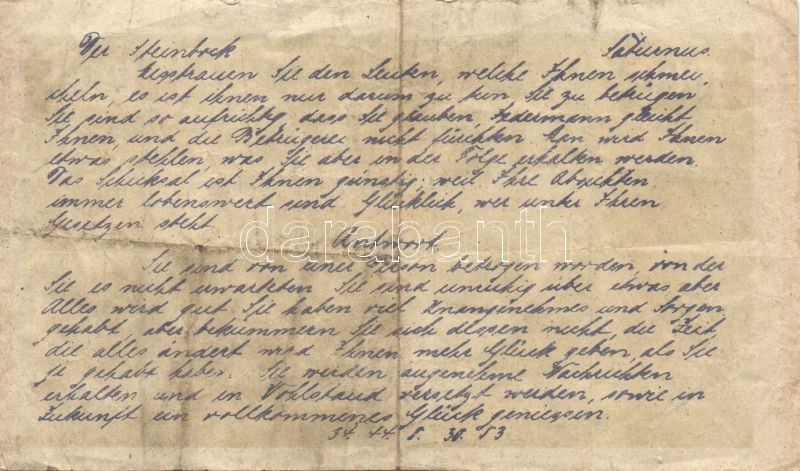 Der Steinbock Saturnus.
Misstrauen Sie den Leuten, welche Ihnen schmei,
cheln, es ist ihnen nur darum zu tun Sie zu betrügen
Sie sind so aufrichtig, dass Sie glauben, Jedermann gleicht
Ihnen, und die Betrügerei nicht fürchten. Man wird Ihnen
etwas stehlen, was Sie aber in der Folge erhalten werden.
Das Schicksal ist Ihnen günstig, weil Ihre Absichten
immer lobenswert sind Glücklich, wer unter Ihren
Gesetzen steht.
Antwort
Sie sind von einer Person betrogen worden, von der
Sie es nicht erwarteten Sie sind unruhig über etwas aber
Alles wird gut Sie haben viel Unangenehmes und Sorgen
gehabt, aber bekümmern Sie sich dessen nicht, die Zeit
die alles ändert wird Ihnen mehr Glück geben, als Sie
je gehabt haben. Sie werden angenehme Nachrichten
erhalten und in Wohlstand versetzt werden, sowie in
Zukunft ein vollkommenes Glück geniessen.
34. 44. 8. 30. 53
darabanth